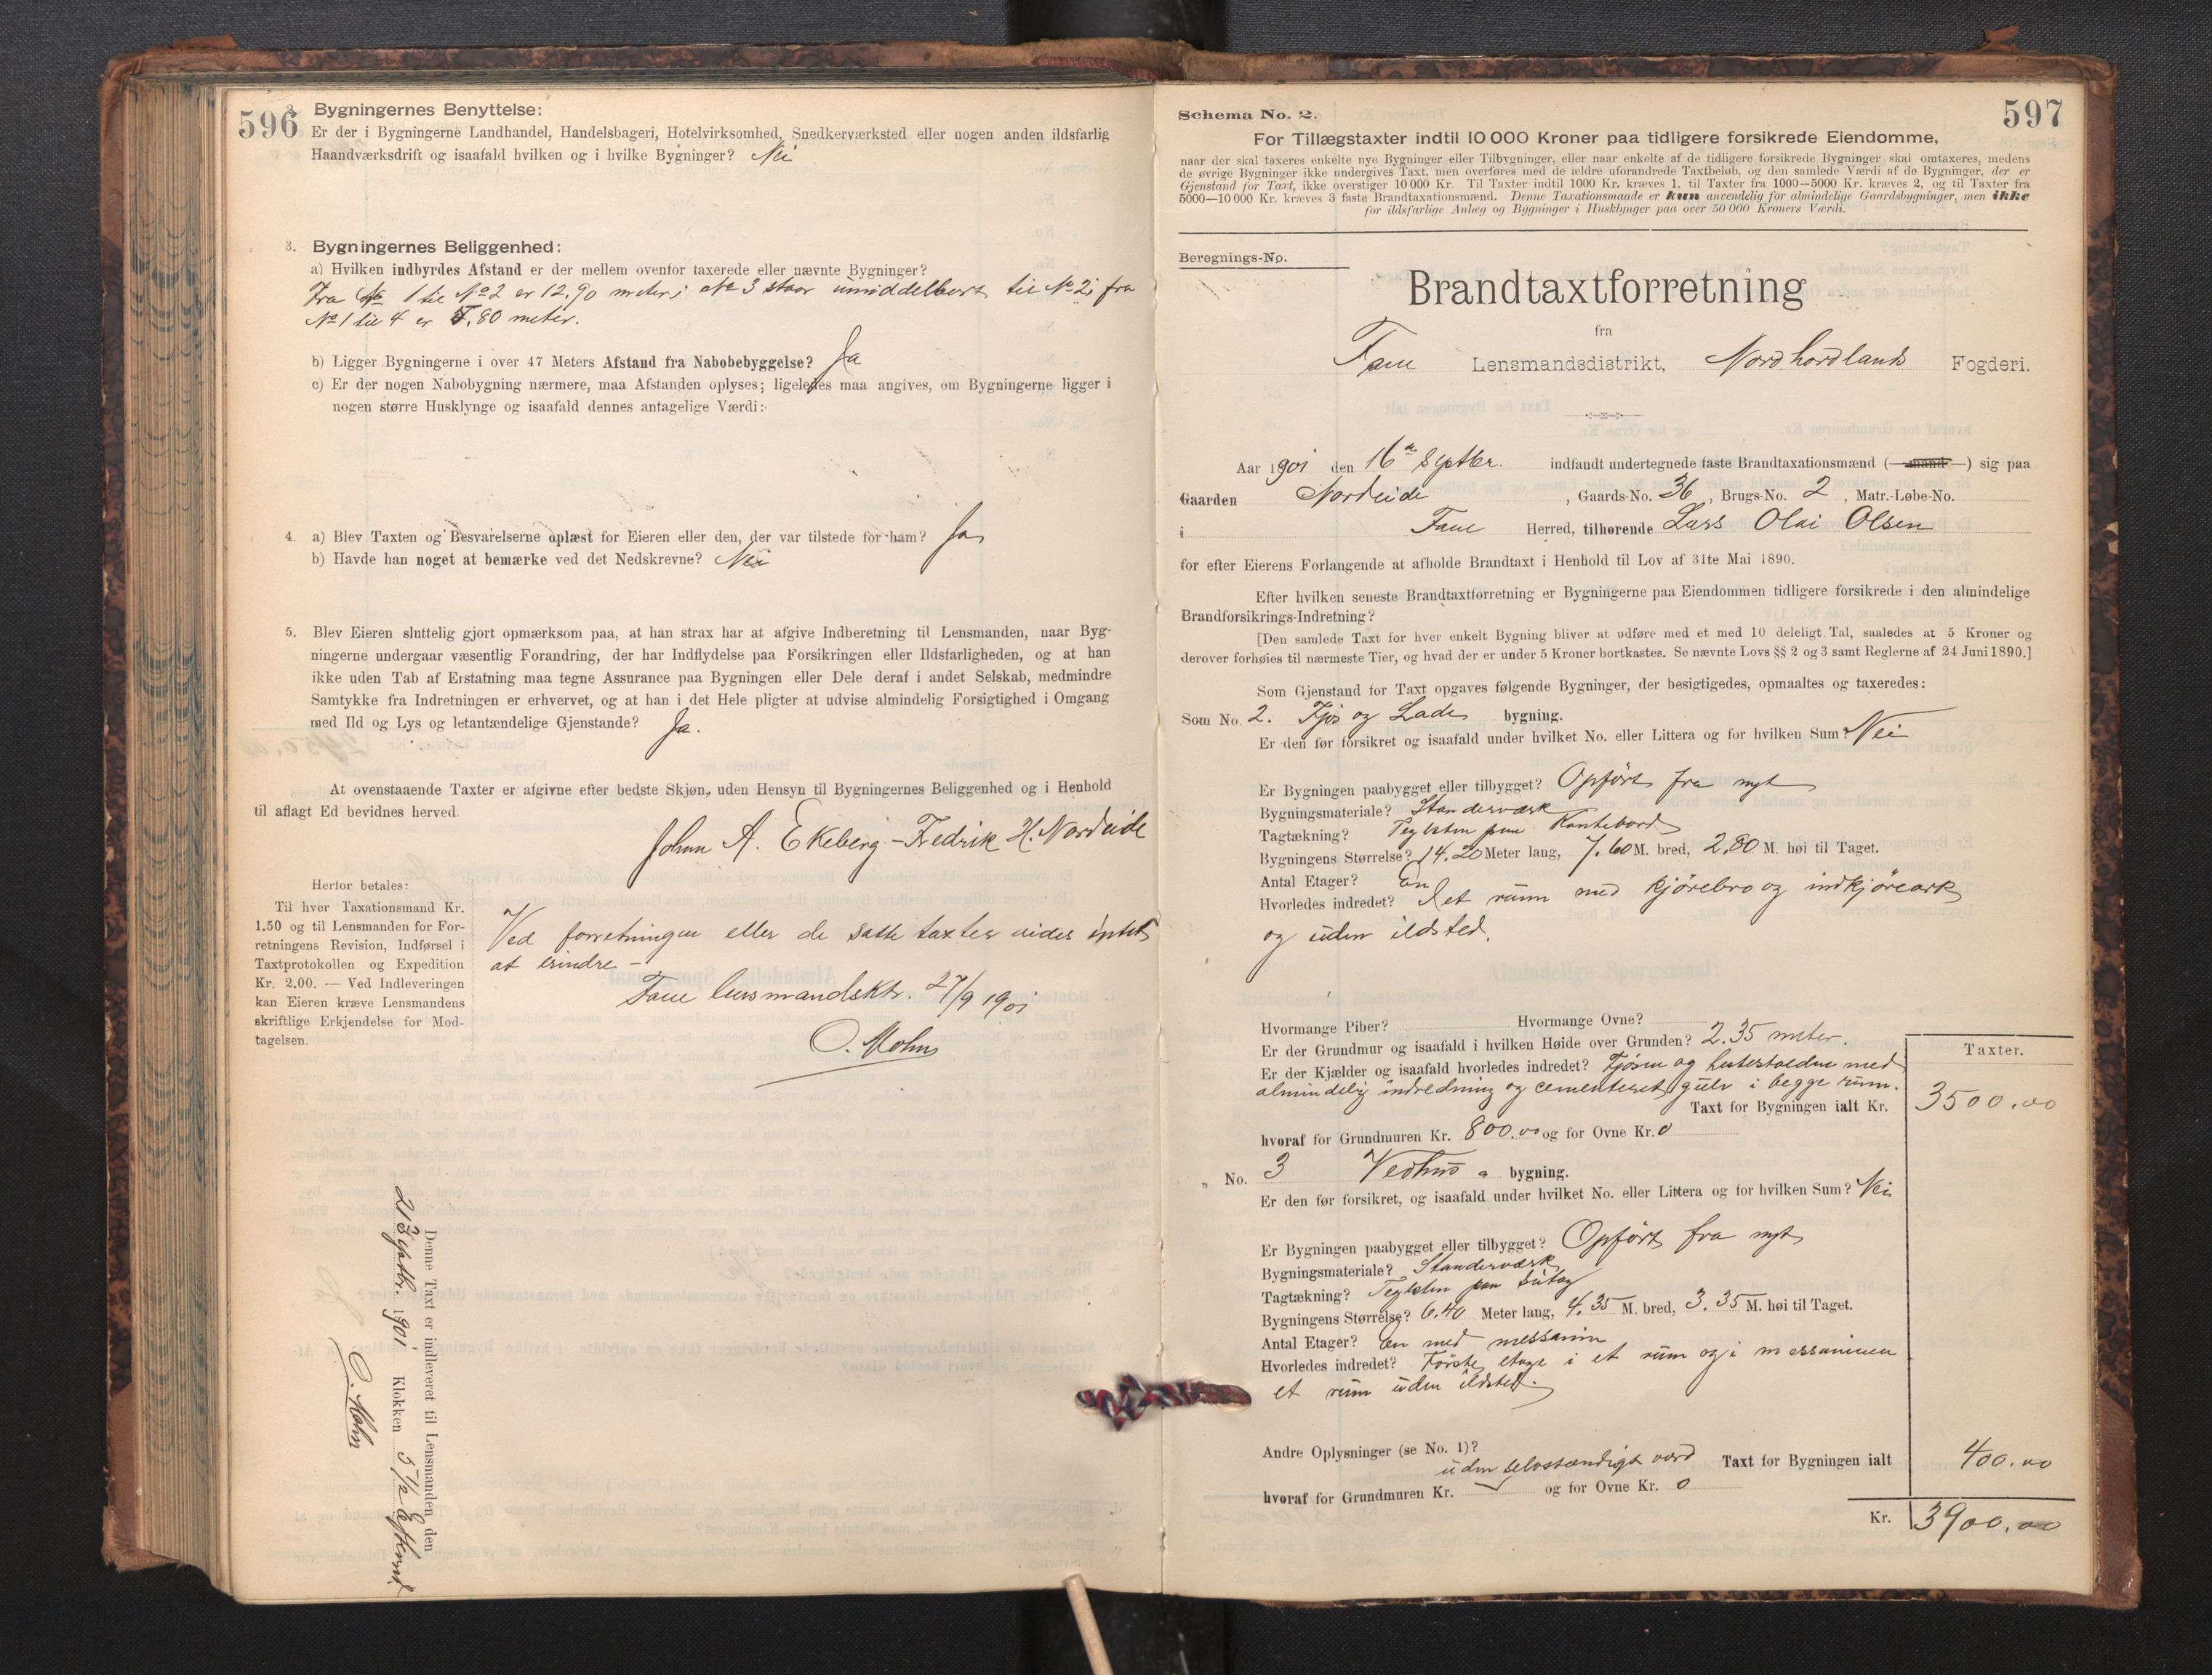 596
2. Bygningernes Benyttelse:
Er der i Bygningerne Landhandel, Handelsbageri, Hotelvirksomhed, Snedkerværksted eller nogen anden ildsfarlig
Haandværksdrift og isaafald hvilken og i hvilke Bygninger? Nei
3. Bygningernes Beliggenhed:
a) Hvilken indbyrdes Afstand er der mellem ovenfor taxerede eller nævnte Bygninger?
Fra No 1 til No 2 er 12,90 meter; No 3 staar umiddelbart til No 2; fra
No 1 til 4 er 7,80 meter.
b) Ligger Bygningerne i over 47 Meters Afstand fra Nabobebyggelse? Ja
c) Er der nogen Nabobygning nærmere, maa Afstanden oplyses; ligeledes maa angives, om Bygningerne ligger i
nogen større Husklynge og isaafald dennes antagelige Værdi:
4. a) Blev Taxten og Besvarelserne oplæst for Eieren eller den, der var tilstede for ham? Ja
b) Havde han noget at bemærke ved det Nedskrevne? Nei
5. Blev Eieren sluttelig gjort opmærksom paa, at han strax har at afgive Indberetning til Lensmanden, naar Byg-
ningerne undergaar væsentlig Forandring, der har Indflydelse paa Forsikringen eller Ildsfarligheden, og at han
ikke uden Tab af Erstatning maa tegne Assurance paa Bygningen eller Dele deraf i andet Selskab, medmindre
Samtykke fra Indretningen er erhvervet, og at han i det Hele pligter at udvise almindelig Forsigtighed i Omgang
med Ild og Lys og letantændelige Gjenstande? Ja.
At ovenstaaende Taxter er afgivne efter bedste Skjøn, uden Hensyn til Bygningernes Beliggenhed og i Henhold
til aflagt Ed bevidnes herved.
Johan A. Ekeberg - Fredrik H. Nordeide
Herfor betales:
Til hver Taxationsmand Kr.
1.50 og til Lensmanden for For-
retningens Revision, Indførsel i
Taxtprotokollen og Expedition
Kr. 2.00. — Ved Indleveringen
kan Eieren kræve Lensmandens
skriftlige Erkjendelse for Mod-
tagelsen.
Ved forretningen eller de satte taxter vides intet
at erindre -
Fane lensmandsktr. 27/9 1901
O. Mohn
Denne Taxt er indleveret til Lensmanden den
21 Septbr. 1901 Klokken 5 1/2 Efterm.
O. Mohn
597
Schema No. 2.
For Tillægstaxter indtil 10 000 Kroner paa tidligere forsikrede Eiendomme,
naar der skal taxeres enkelte nye Bygninger eller Tilbygninger, eller naar enkelte af de tidligere forsikrede Bygninger skal omtaxeres, medens
de øvrige Bygninger ikke undergives Taxt, men overføres med de ældre uforandrede Taxtbeløb, og den samlede Værdi af de Bygninger, der er
Gjenstand for Taxt, ikke overstiger 10 000 Kr. Til Taxter indtil 1000 Kr. kræves 1, til Taxter fra 1000—5000 Kr. kræves 2, og til Taxter fra
5000—10 000 Kr. kræves 3 faste Brandtaxationsmænd. Denne Taxationsmaade er kun anvendelig for almindelige Gaardsbygninger, men ikke
for ildsfarlige Anlæg og Bygninger i Husklynger paa over 50 000 Kroners Værdi.
Beregnings-No.
Brandtaxtforretning
fra
Fane Lensmandsdistrikt, Nordhordlands Fogderi.
Aar 1901 den 16de Septbr. indfandt undertegnede faste Brandtaxationsmænd (—mand—) sig paa
Gaarden Nordeide, Gaards-No. 36, Brugs-No. 2, Matr.-Løbe-No.
i Fane Herred, tilhørende Lars Olai Olsen
for efter Eierens Forlangende at afholde Brandtaxt i Henhold til Lov af 31te Mai 1890.
Efter hvilken seneste Brandtaxtforretning er Bygningerne paa Eiendommen tidligere forsikrede i den almindelige
Brandforsikrings-Indretning?
[Den samlede Taxt for hver enkelt Bygning bliver at udføre med et med 10 deleligt Tal, saaledes at 5 Kroner og
derover forhøies til nærmeste Tier, og hvad der er under 5 Kroner bortkastes. Se nævnte Lovs §§ 2 og 3 samt Reglerne af 24 Juni 1890.]
Som Gjenstand for Taxt opgaves følgende Bygninger, der besigtigedes, opmaaltes og taxeredes:
Som No. 2. Fjøs og Lade bygning.
Er den før forsikret og isaafald under hvilket No. eller Littera og for hvilken Sum? Nei
Er Bygningen paabygget eller tilbygget? Opført fra nyt
Bygningsmateriale? Standerværk
Tagtækning? Teglsten paa Kantebord
Bygningens Størrelse? 14.20 Meter lang, 7.60 M. bred, 2.80 M. høi til Taget.
Antal Etager? en
Hvorledes indredet? I et rum med kjørebro og indkjøreark
og uden ildsted.
Hvormange Piber? Hvormange Ovne?
Er der Grundmur og isaafald i hvilken Høide over Grunden? 2.35 meter.
Taxter.
Er der Kjælder og isaafald hvorledes indredet? Fjøsen og hestestalden med
almindelig indredning og cementeret gulv i begge rum.
Taxt for Bygningen ialt Kr. 3500.00
hvoraf for Grundmuren Kr. 800.00 og for Ovne Kr. 0
„ No. 3 Vedhus bygning.
Er den før forsikret, og isaafald under hvilket No. eller Littera og for hvilken Sum? Nei
Er Bygningen paabygget eller tilbygget? Opført fra nyt
Bygningsmateriale? Standerværk
Tagtækning? Teglsten paa sutag
Bygningens Størrelse? 6.40 Meter lang, 4.35 M. bred, 3.35 M. høi til Taget.
Antal Etager? en med messanin
Hvorledes indredet? Første etage i et rum og i messaninen
et rum uden ildsted.
Andre Oplysninger (se No. 1)?
uden selvstændigt værd Taxt for Bygningen ialt 400.00
hvoraf for Grundmuren Kr. og for Ovne Kr. 0
Kr. 3900.00